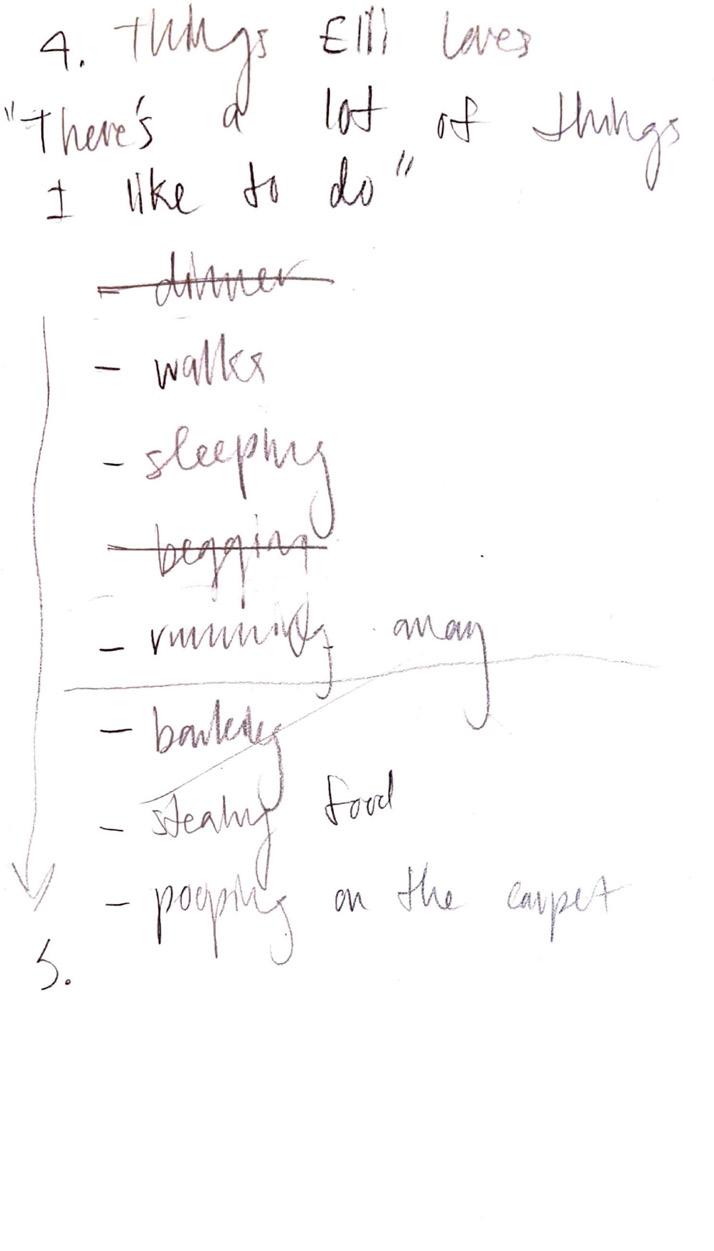 4. Things Elli loves
"There's a lot of things
I like to do"
- dinner
- walks
- sleeping
- begging
- running away
- barking
- stealing food
- pooping on the carpet
5.